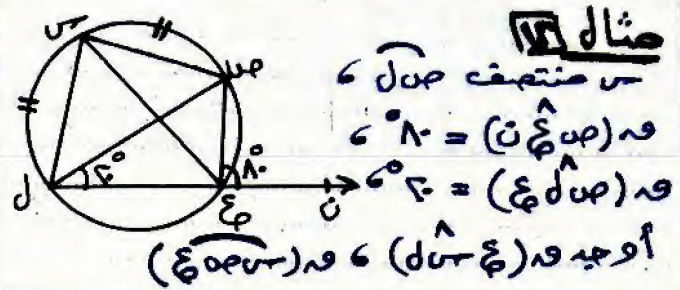 مثال ١٢
س منتصف ص ل ،
ق (ص ع ن) = ٨٠° ،
ق (ص ل ع) = ٢٠° ،
أوجد ق (ع س ل) ، ق (س ص ع)
س
ص
ل
ع
ن
٢٠°
٨٠°